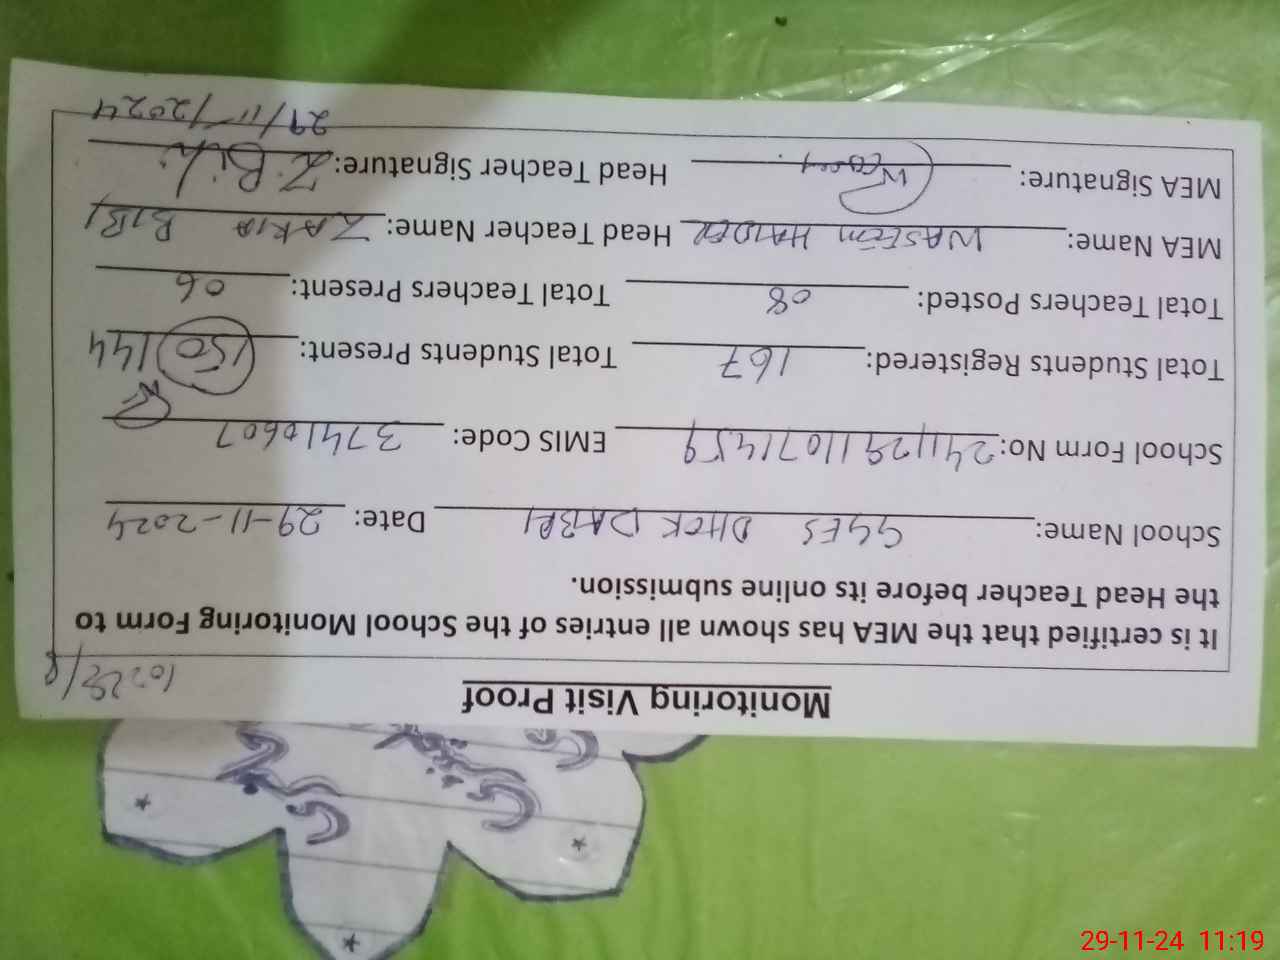 Monitoring Visit Proof
It is certified that the MEA has shown all entries of the School Monitoring Form to
the Head Teacher before its online submission.
School Name: GGES DHOK DABRI Date: 29-11-2024
School Form No: 24112911071459 EMIS Code: 37410607
Total Students Registered: 167 Total Students Present: 150 144
Total Teachers Posted: 08 Total Teachers Present: 06
MEA Name: WASEEM HAIDER Head Teacher Name: ZAKIA BIBI
MEA Signature: Head Teacher Signature: Z.Bibi
29/11/2024
29-11-24 11:19